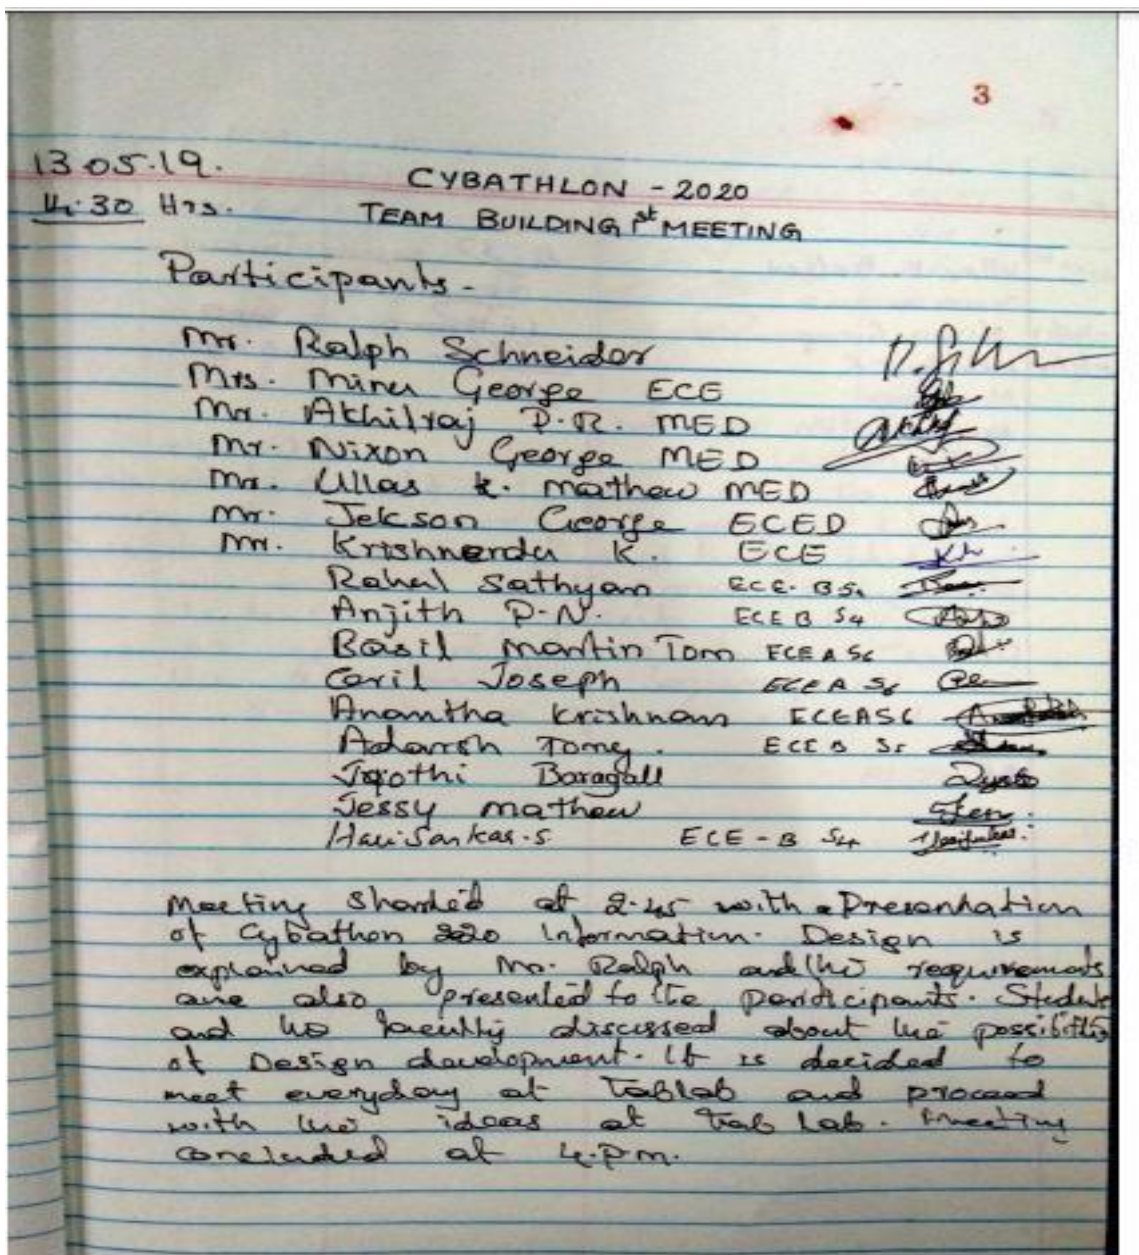 3
13.05.19.
CYBATHLON - 2020
14.30 Hrs.
TEAM BUILDING 1st MEETING
Participants -
Mr. Ralph Schneider
Mrs. Minu George ECE
Mr. Akhilraj P.R. MED
Mr. Nixon George MED
Mr. Ullas K. Mathew MED
Mr. Jekson George ECED
Mr. Krishnendu K. ECE
Rahul Sathyan ECE-B
Anjith P.N. ECE B S4
Basil Martin Tom ECE A S6
Caril Joseph ECE A S6
Anantha Krishnan ECE A S6
Adarsh Tomy. ECE B
Jyothi Baragall
Jessy Mathew
HariSankar.S ECE-B S4
Meeting Sharded at 2.45 with a Presentation
of Cybathon 2020 Information. Design is
explained by Mr. Ralph and the requirements
are also presented to the participants. Students
and the faculty discussed about the possibilities
of Design development. It is decided to
meet everyday at Fablab and proceed
with the ideas at Fab Lab. Meeting
concluded at 4.Pm.